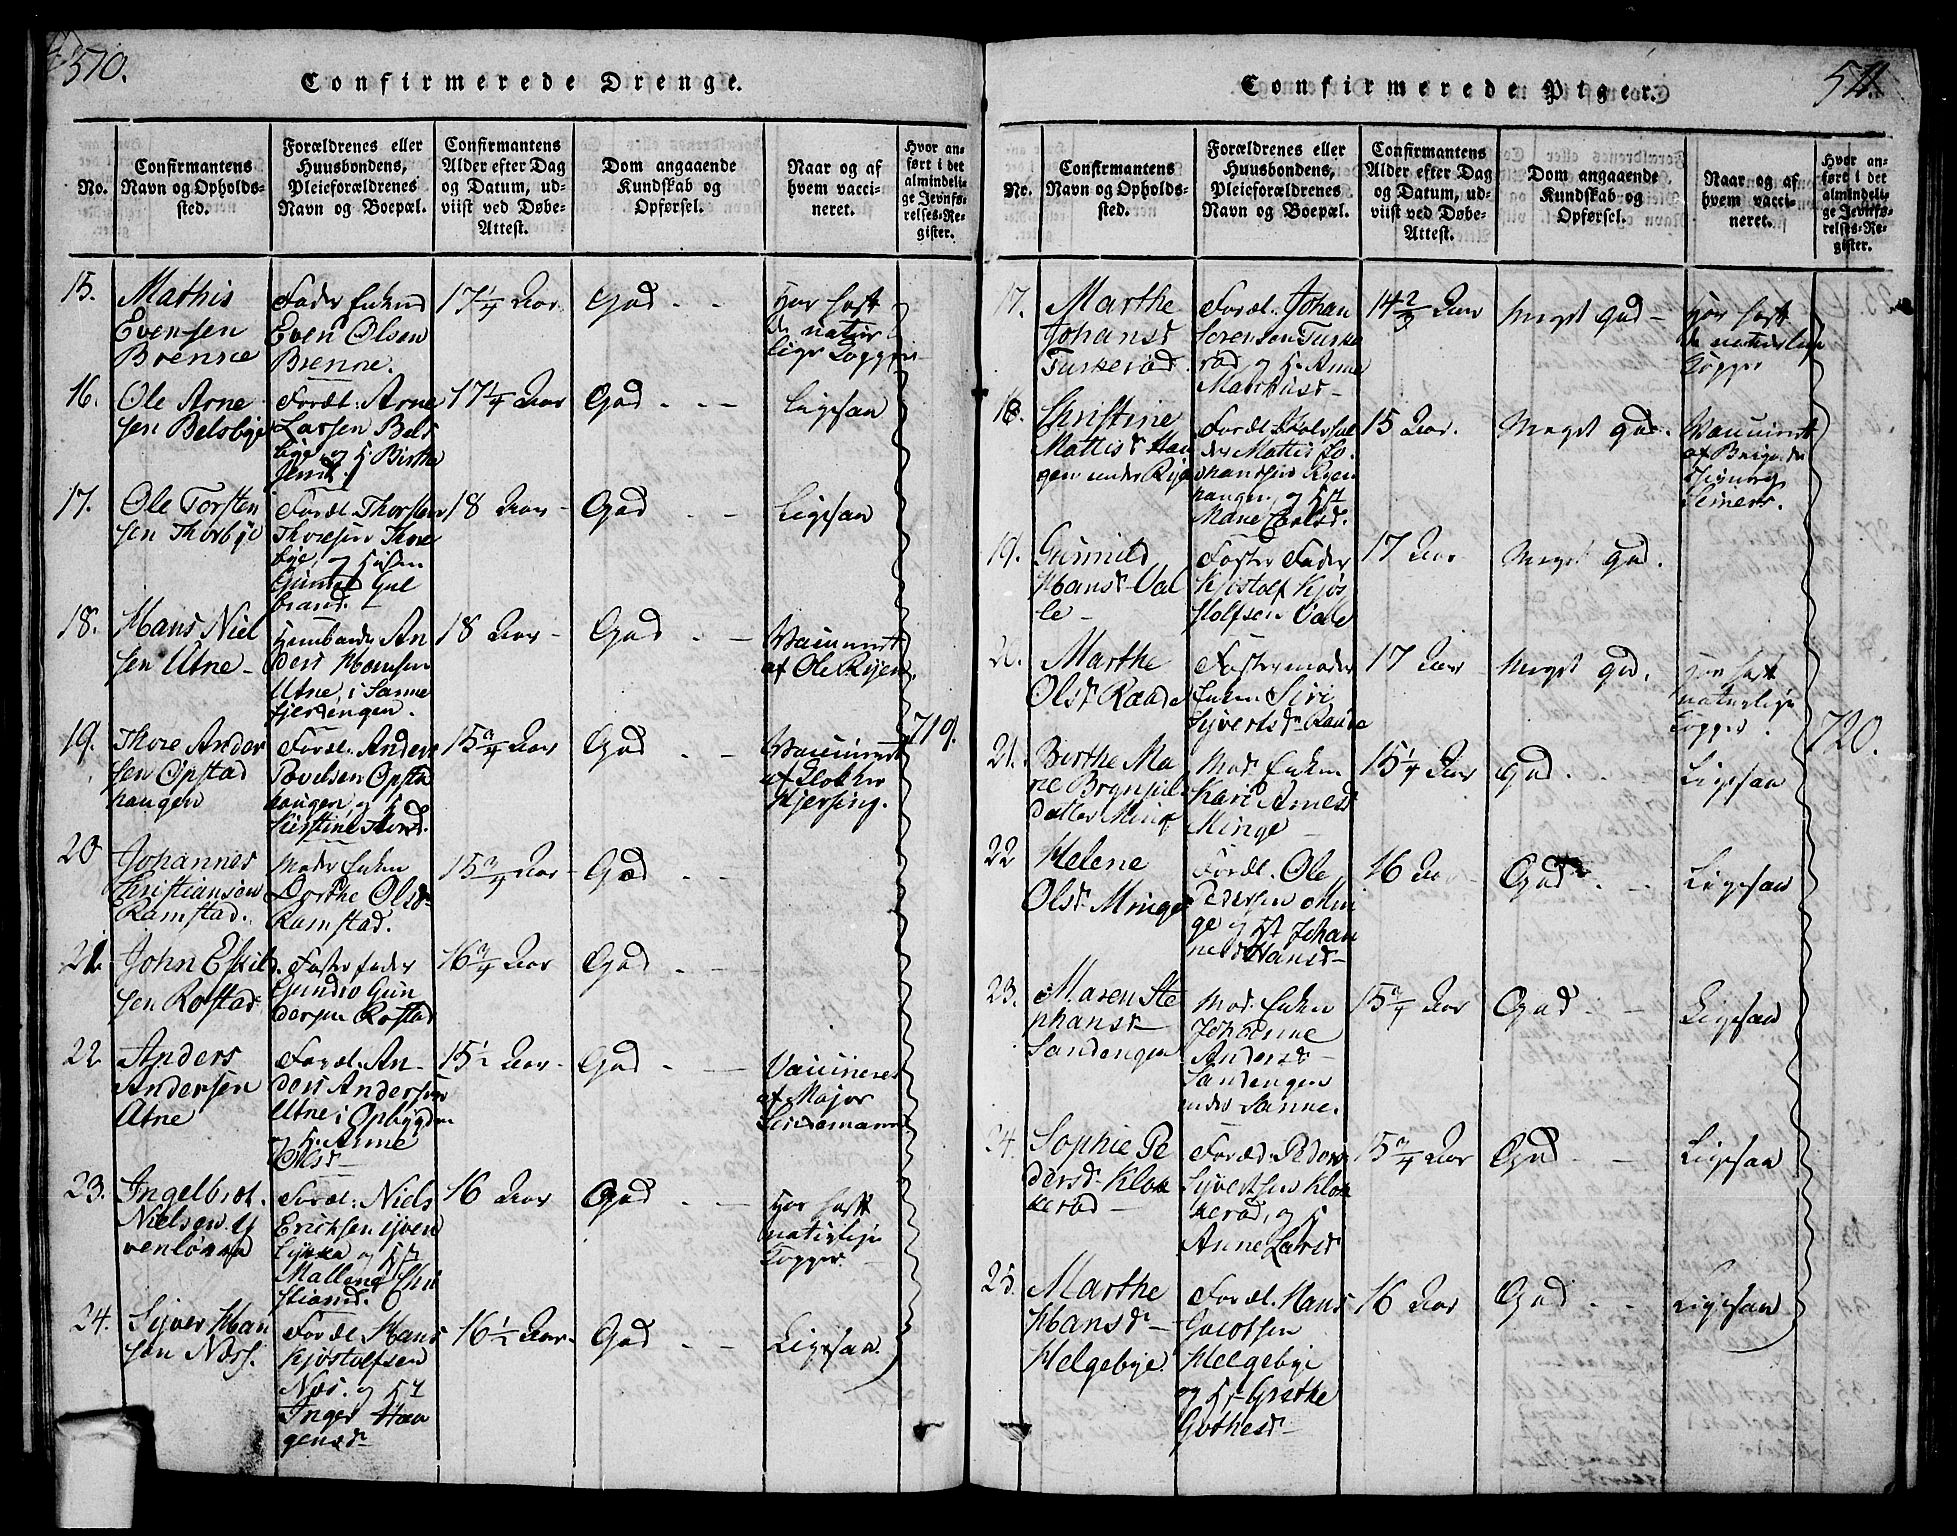 570.
Confirmerede Drenge.
No.
Confirmantens
Navn og Opholds-
sted.
Forældrenes eller
Huusbondens,
Pleieforældrenes
Navn og Boepæl.
Confirmantens
Alder efter Dag
og Datum, ud-
viist ved Døbe-
Attest.
Dom angaaende
Kundskab og
Opførsel.
Naar og af
hvem vacci-
neret.
Hvor an-
ført i det
almindeli-
ge Jevnfø-
relses-Re-
gister.
15.
Mathis
Evensen
Brenne
Fader Enkem
Even Olsen
Brenne.
17 1/4 Aar
God - -
Har haft
de natur
lige Kopper
16.
Ole Arne
sen Belsbye
Foræl. Arne
Larsen Bels
bye, og H. Birthe
17 1/4 Aar
God - - -
Ligesaa
17.
Ole Torsten
sen Thorbye
Foræl. Thorsten
Thoresen Thore
bye, og
Gunild Gul
brand.
18 Aar -
God - -
Ligesaa
18.
Hans Niel
sen Utne -
Huusbonde An
ders Hansen
Utne, i Sanne
fjerdingen.
18 Aar -
God - -
Vaccineret
af Ole Ryen.
19.
Thore Ander
sen Opstad
haugen
Foræl. Anders
Povelsen Opsta
haugen, og H
Kirstine
15 3/4 Aar
God - -
Vaccineret
af Klokker
Hjersing.
719.
20
Johannes
Christiansen
Ramstad.
Moder Enken
Dorthe Olsd.
Ramstad.
15 3/4 Aar -
God - -
21
John Eskild
sen Rostad
Foster fader
Gunder Gun
dersen Rostad
16 3/4 Aar
God - -
22
Anders
Andersen
Utne
Foræl. An-
ders Andersen
Utne i Opbygden
og H. Anne
Olsd -
15 1/2 Aar -
God - -
Vaccineret
af Major
23.
Ingelbret.
Nielsen y
venløkka
Foræl. Niels
Ericksen yven
løkka og H
Mallene Chri
stiansd.
16 Aar
God - -
Har haft
naturlige
Kopper. -
24.
Syver Han
sen Næss.
Foræl Hans
Kjøstolfsen
Næs. og H
Inger Haa
gensd -
16 1/2 Aar -
God - -
Ligesaa
511.
Confirmerede Piger.
No.
Confirmantens
Navn og Opholds-
sted.
Forældrenes eller
Huusbondens,
Pleieforældrenes
Navn og Boepæl.
Confirmantens
Alder efter Dag
og Datum, ud-
viist ved Døbe-
Attest.
Dom angaaende
Kundskab og
Opførsel.
Naar og af
hvem vacci-
neret.
Hvor an-
ført i det
almindeli-
ge Jevnfø-
relses-Re-
gister.
17.
Marthe
Johansd
Tuskerød
Foræl. Johan
Sorensen Tuske
rød, og H. Anne
Marthusd -
14 2/3 Aar
Meget God -
Har haft
de naturlige
Kopper
18.
Christine
Mattisd Hau
gen under Rye
Foræl
der Mattis Jo
hansen Ryen
haugen, og H
Mane Carlsd.
15 Aar.
Meget god.
Vaccineret
af
19.
Gunnild
Hansd Val
le -
Foster Fader
Kjøstolf Kjøs
tolfsen Vale
17 Aar
Meget God.
20.
Marthe
Olsd Raade
Fostermoder
Enken Siri
Syvertsd - Raade
17 Aar
Meget god.
Har haft
naturlige
Kopper.
720.
21.
Berthe Ma
rie Brynjul
datter Minge
Mod. Enken
Kari Arnesd
Minge -
15 1/4 Aar
God. -
Ligesaa
22
Helene
Olsd. Minge
Foræl. Ole
Pedersen Min
ge og H Johan
ne Hansd -
16 Aar -
God. -
Ligesaa
23.
Maren Ste
phansd -
Sandengen
Mod. Enken
Johanne
Andersd -
Sandengen
under Sanne.
15 3/4 Aar
God - -
Ligesaa
24.
Sophie Pe
dersd - Klok
kerød -
Foræld. Peder
Syvertsen Klok
kerød, og H
Anne Larsd
15 3/4 Aar
God - -
Ligesaa
25.
Marthe
Hansd -
Helgebye
Foræl. Hans
Jacobsen
Helgebye
og H - Grethe
Guthesd -
16 Aar
God - -
Ligesaa